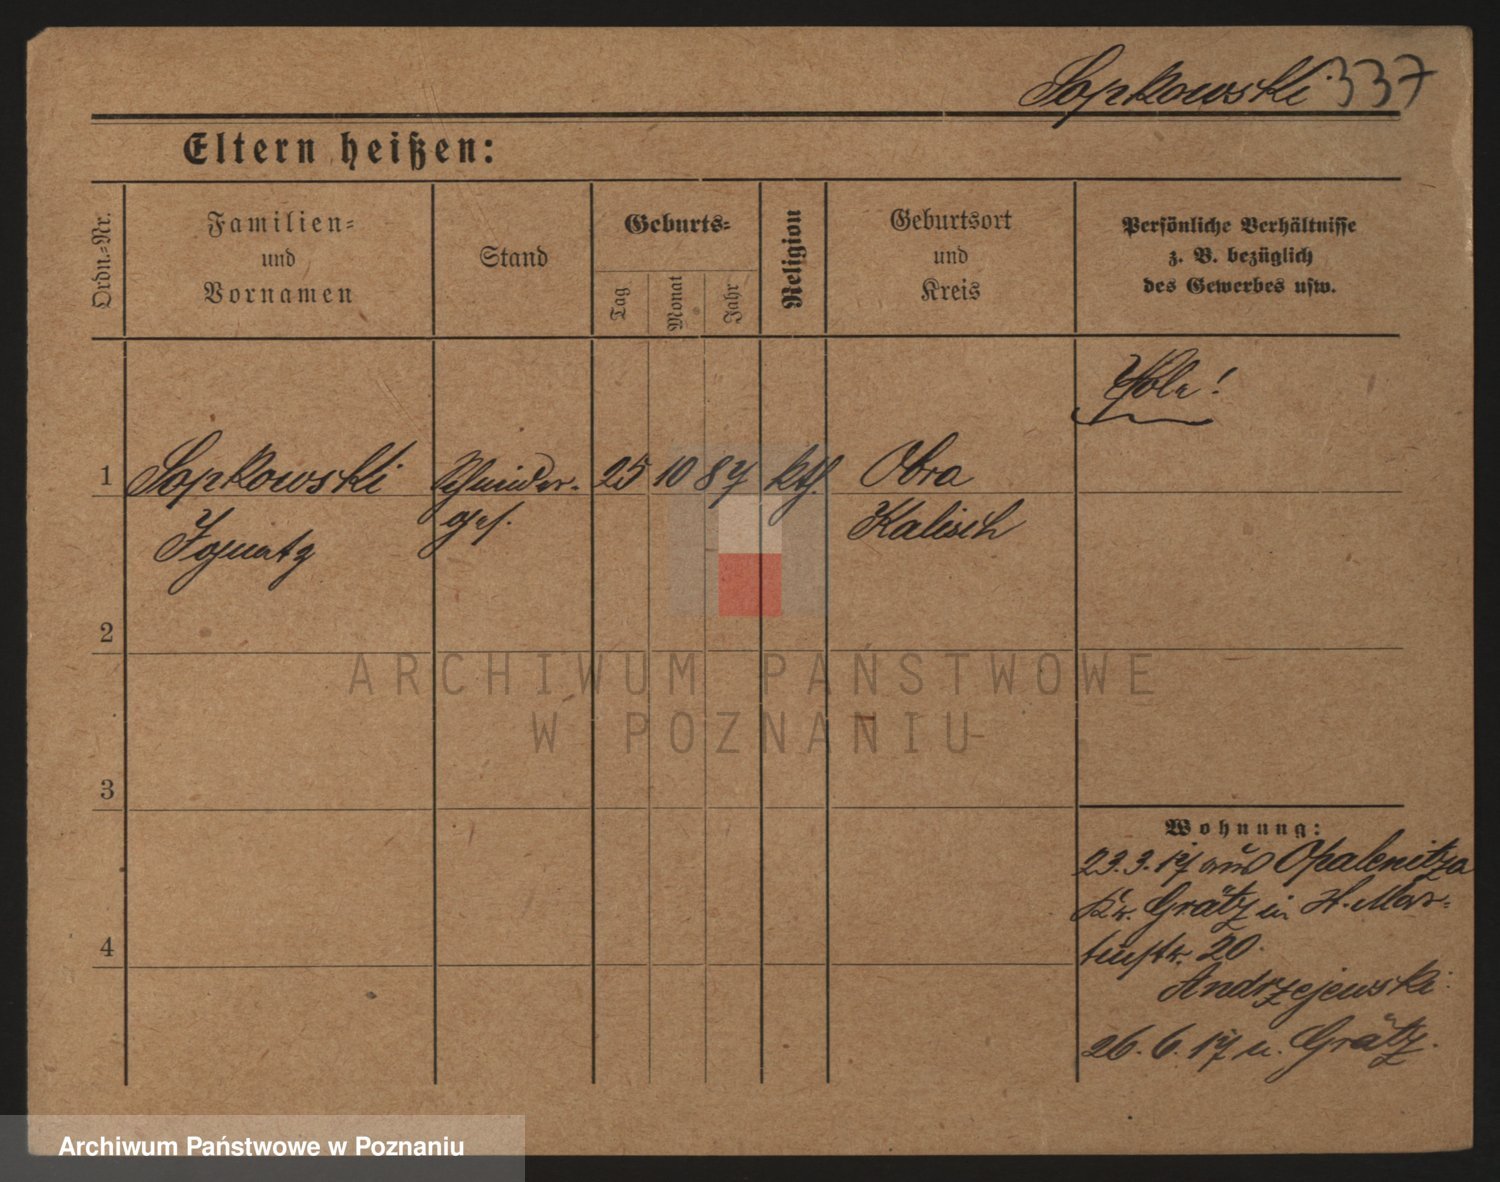 Sopkowski 337
Eltern heißen:
Ordn.-Nr.
Familien-
und
Vornamen
Stand
Geburts-
Tag
Monat
Jahr
Religion
Geburtsort
und
Kreis
Persönliche Verhältnisse
z. B. bezüglich
des Gewerbes usw.
Pole!
1 Sopkowski Schneider- 25 10 87 kth. Obra
Ignatz ges. Kalisch
2
3
4
Wohnung:
23.3.17 aus Opalenitza
Kr. Grätz in H. Mar-
tinstr. 20.
Andrzejewski.
26.6.17 n. Grätz.
ARCHIWUM PAŃSTWOWE
W POZNANIU
Archiwum Państwowe w Poznaniu